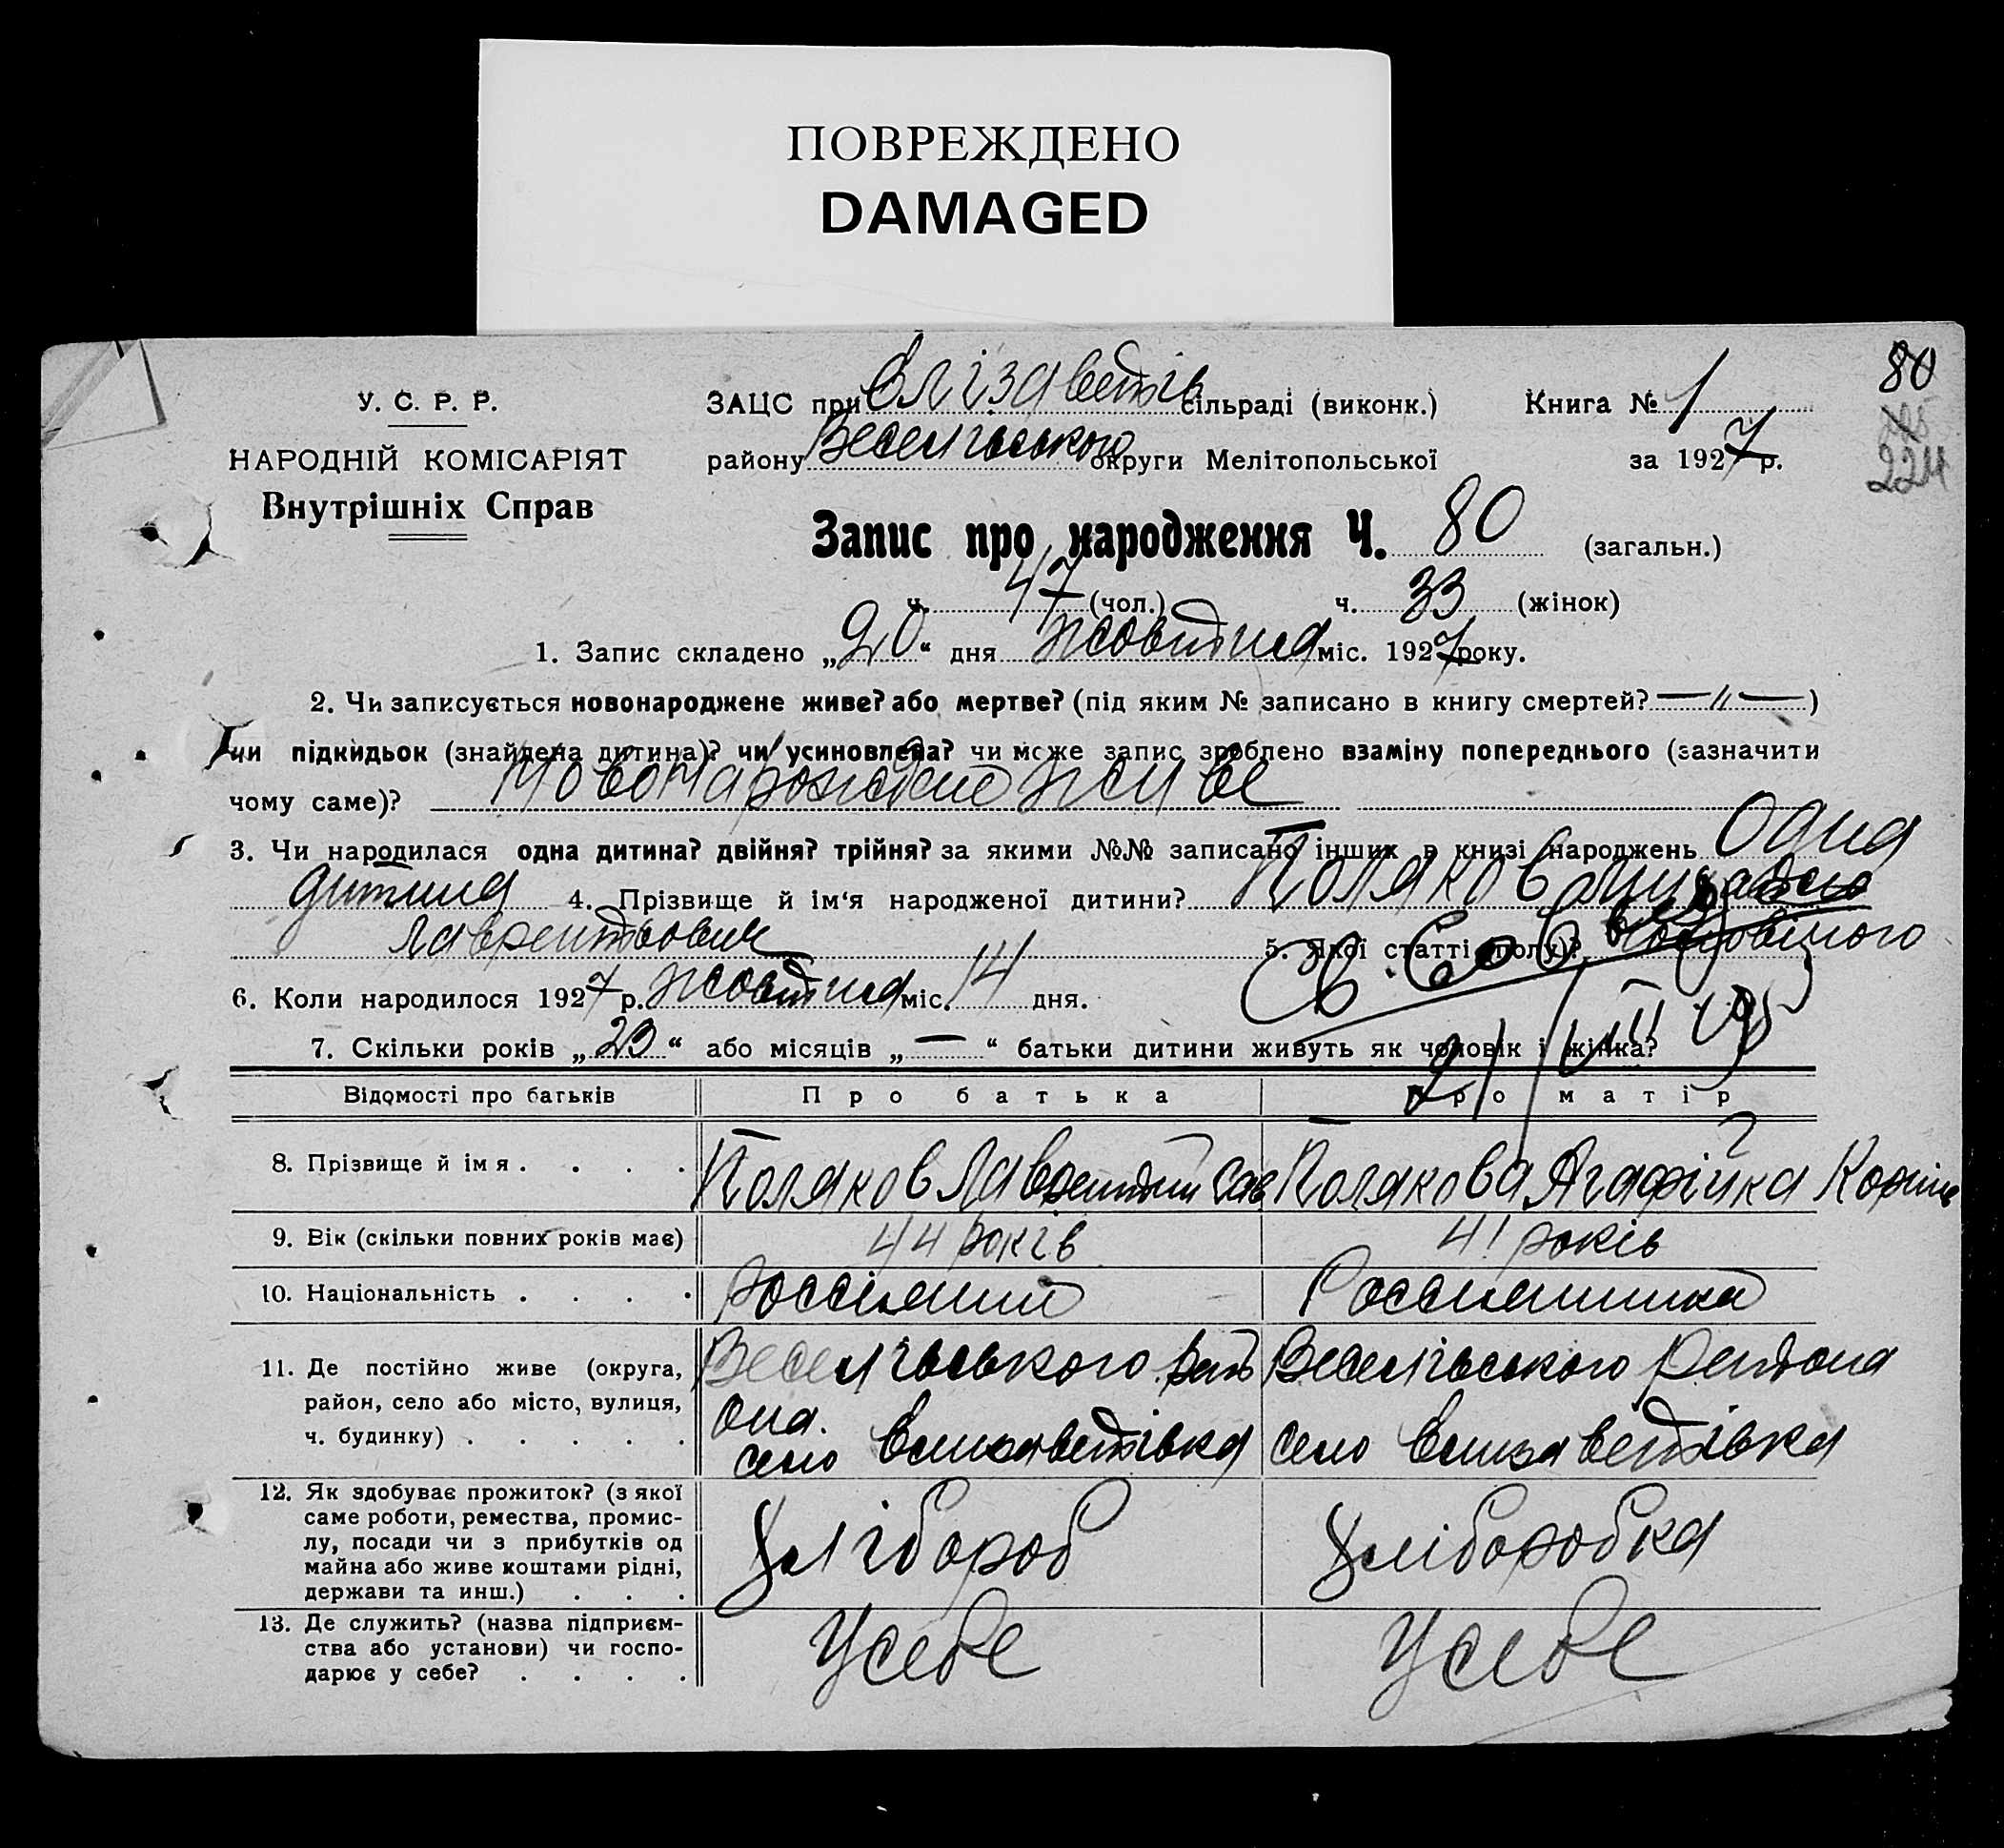 ПОВРЕЖДЕНО
DAMAGED
80
У. С. Р. Р.
ЗАЦС при Єлізаветів сільраді (виконк.) Книга № 1
224
НАРОДНІЙ КОМІСАРІЯТ
району Веселівського округи Мелітопольської за 1927 р.
Внутрішніх Справ
Запис про народження Ч. 80 (загальн.)
ч. 47 (чол.) ч. 33 (жінок)
1. Запис складено „20“ дня жовтня міс. 1927 року.
2. Чи записується новонароджене живе? або мертве? (під яким № записано в книгу смертей? — „ — )
чи підкидьок (знайдена дитина)? чи усиновлена? чи може запис зроблено взаміну попереднього (зазначити
чому саме)? живе
3. Чи народилася одна дитина? двійня? трійня? за якими №№ записано інших в книзі народжень Одна
дитина 4. Прізвище й ім‘я народженої дитини? Поляков
Лаврентьович 5. Якої статті (полу)?
6. Коли народилося 1927 р. жовтня міс. 14 дня.
7. Скільки років „23“ або місяців „—“ батьки дитини живуть як чоловік і жінка?
Відомості про батьків Про батька Про матір
8. Прізвище й імя . . . . Поляков Лаврентий Сав Полякова Агафійка
9. Вік (скільки повних років має) 44 років 41 років
10. Національність . . . .
11. Де постійно живе (округа, Веселівського рай Веселівського
район, село або місто, вулиця, она.
ч. будинку) . . . . . село Елизаветівка село Елизаветівка
12. Як здобуває прожиток? (з якої
саме роботи, ремества, промис-
лу, посади чи з прибутків од Хлібороб Хліборобка
майна або живе коштами рідні,
держави та инш.) . . .
13. Де служить? (назва підприєм-
ства або установи) чи госпо- У себе У себе
дарює у себе? . . . .